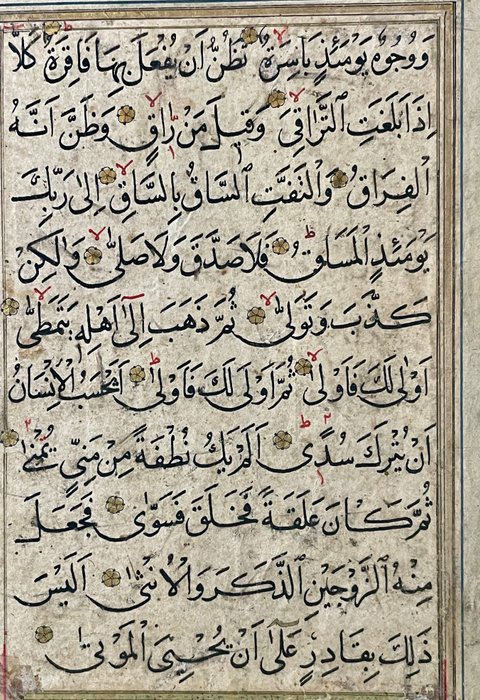 وَوُجُوهٌ يَوْمَئِذٍ بَاسِرَةٌ تَظُنُّ اَنْ يُفْعَلَ بِهَا فَاقِرَةٌ كَلَّا
اِذَا بَلَغَتِ التَّرَاقِيَ وَقِيلَ مَنْ رَاقٍ وَظَنَّ اَنَّهُ
الْفِرَاقُ وَالْتَفَّتِ السَّاقُ بِالسَّاقِ اِلٰى رَبِّكَ
يَوْمَئِذٍ الْمَسَاقُ فَلَا صَدَّقَ وَلَا صَلّٰى وَلٰكِنْ
كَذَّبَ وَتَوَلّٰى ثُمَّ ذَهَبَ اِلٰٓى اَهْلِهِ يَتَمَطّٰى
اَوْلٰى لَكَ فَاَوْلٰى ثُمَّ اَوْلٰى لَكَ فَاَوْلٰى اَيَحْسَبُ الْاِنْسَانُ
اَنْ يُتْرَكَ سُدًى اَلَمْ يَكُ نُطْفَةً مِنْ مَنِيٍّ يُمْنٰى
ثُمَّ كَانَ عَلَقَةً فَخَلَقَ فَسَوّٰى فَجَعَلَ
مِنْهُ الزَّوْجَيْنِ الذَّكَرَ وَالْاُنْثٰى اَلَيْسَ
ذٰلِكَ بِقَادِرٍ عَلٰٓى اَنْ يُحْيِيَ الْمَوْتٰى